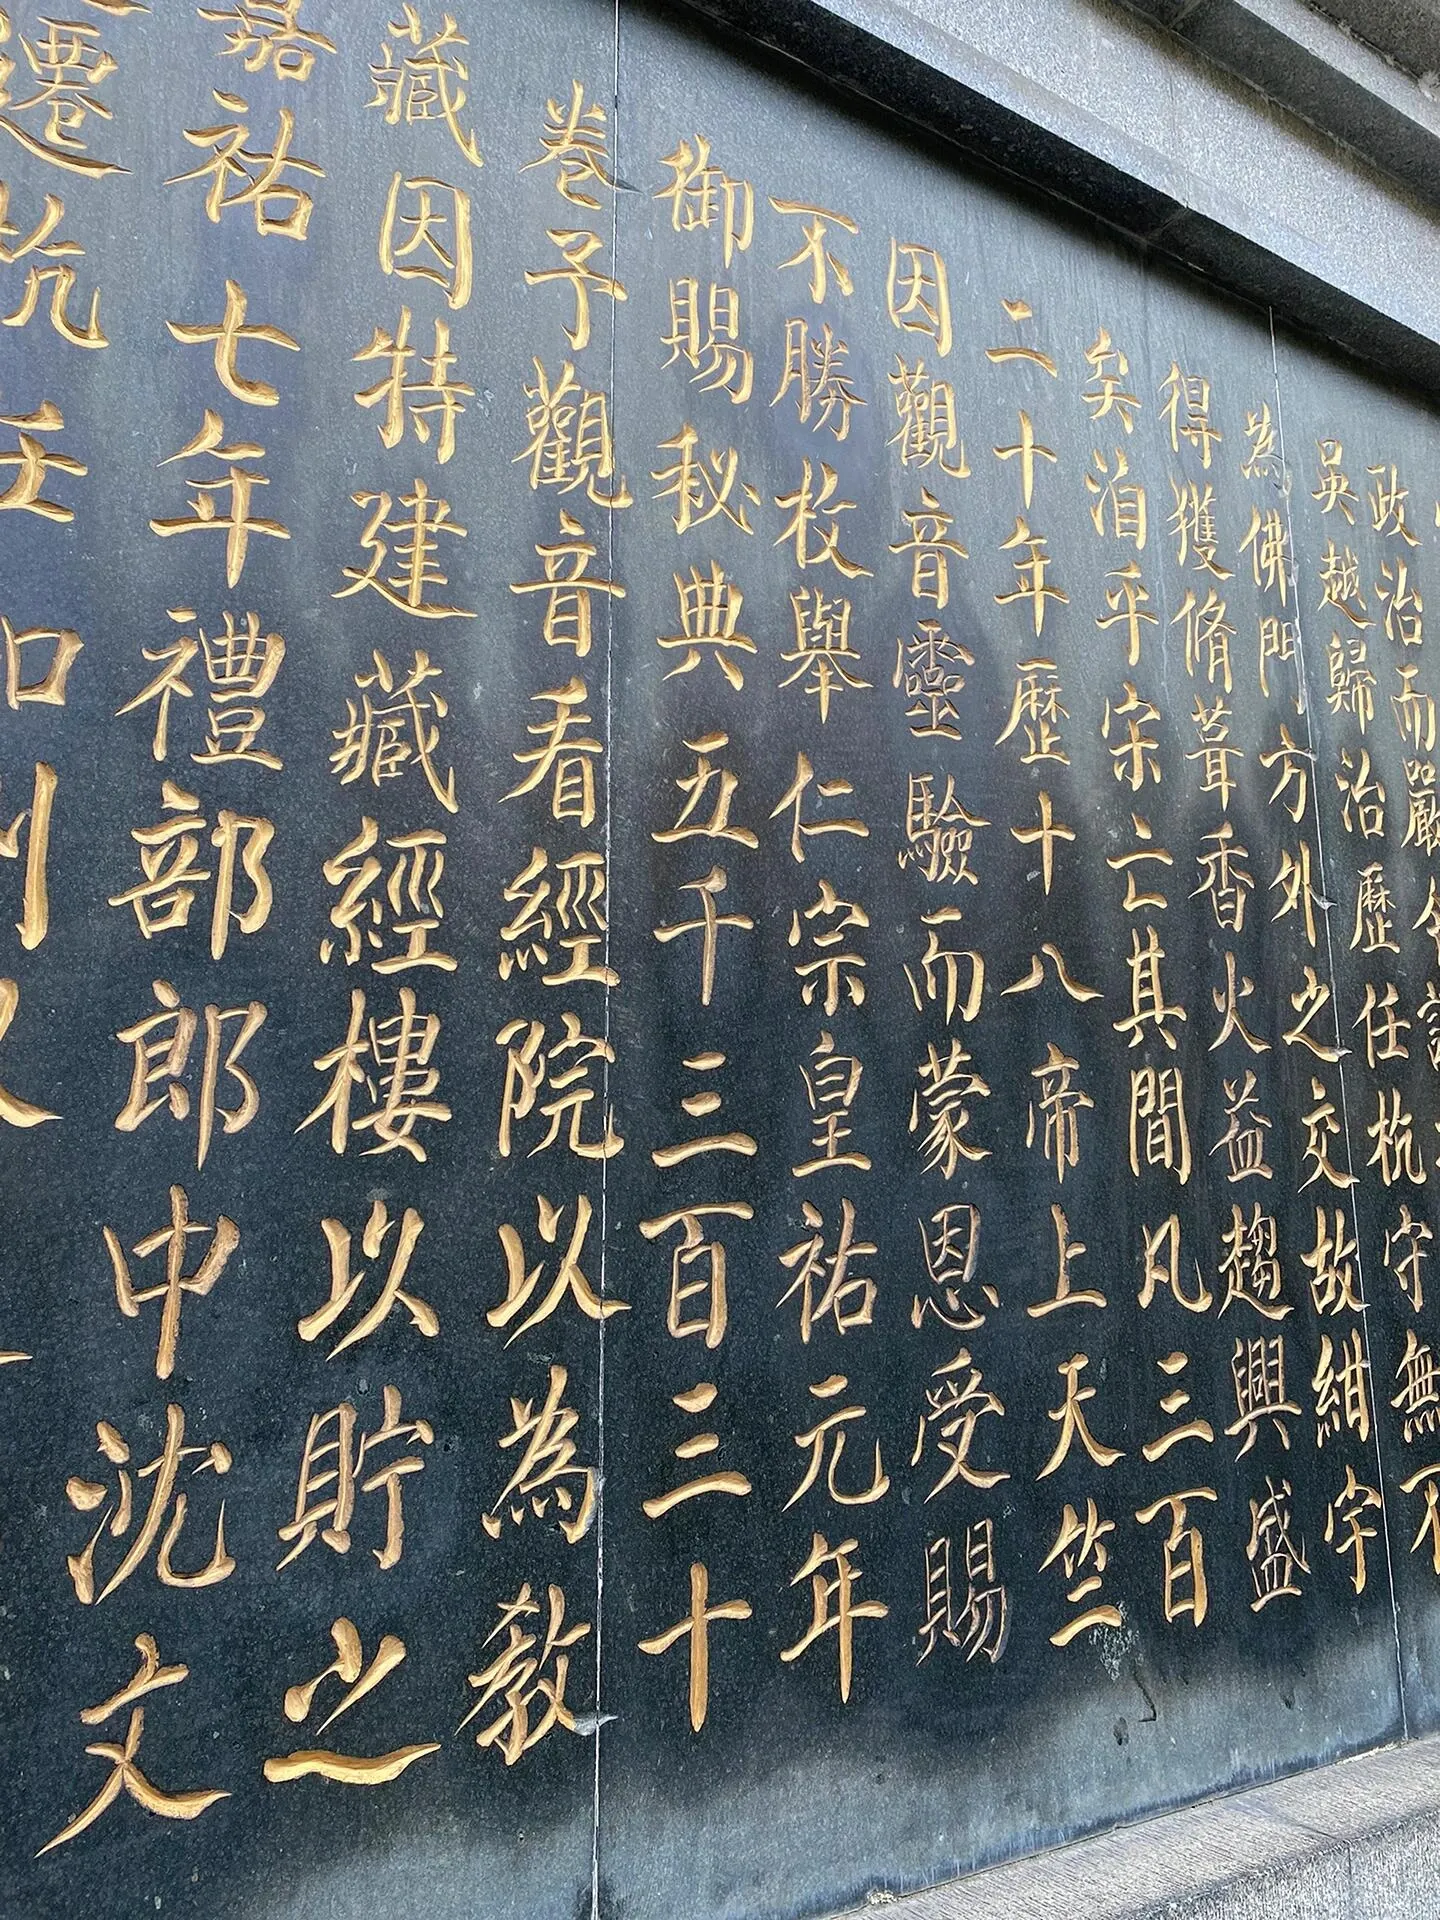 政治而嚴
吳越歸治歷任杭守無不
為佛門方外之交故紺宇
得獲脩葺香火益趨興盛
矣洎乎宋亡其間凡三百
二十年歷十八帝上天竺
因觀音靈驗而蒙恩受賜
不勝枚舉仁宗皇祐元年
御賜秘典五千三百三十
卷予觀音看經院以為教
藏因特建藏經樓以貯之
嘉祐七年禮部郎中沈文
遷杭任知州以